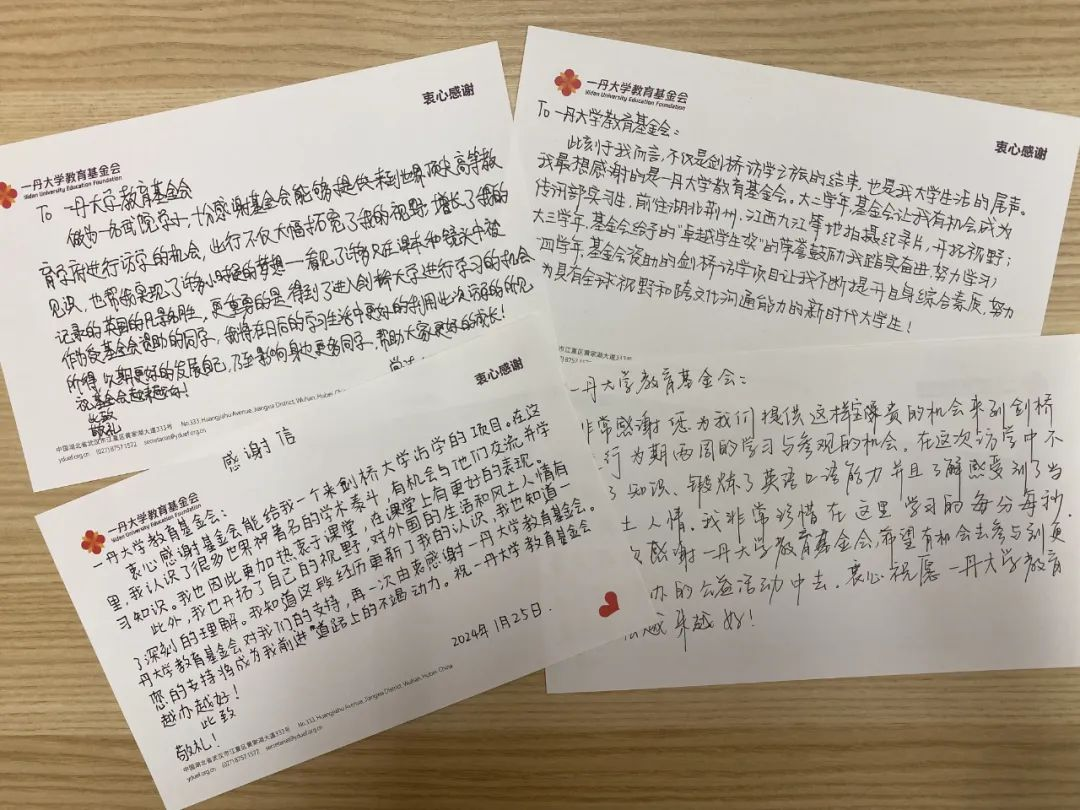 衷心感谢
一丹大学教育基金会
Yidan University Education Foundation
To 一丹大学教育基金会
做为一名武院学子，十分感谢基金会能够提供来到世界顶尖高等教
育学府进行访学的机会，此行不仅大幅拓宽了我的视野，增长了我的
见识，也帮助我实现了许多儿时的梦想——看见了许多只在课本和镜头中被
记录的英国的风景名胜，更重要的是得到了进入剑桥大学进行学习的机会
作为受基金会资助的同学，我将在日后的学习生活中更好的利用此次访学的所见
所得，以期更好的发展自己，乃至影响身边更多同学，帮助大家更好的成长！
祝基金会越来越好！
此致
敬礼
No.333, Huangjiahu Avenue, Jiangxia District, Wuhan, Hubei
中国湖北省武汉市江夏区黄家湖大道333号
yduef.org.cn (027)8757-1572 secretariat@yduef.org.cn
一丹大学教育基金会
Yidan University Education Foundation
衷心感谢
To 一丹大学教育基金会：
此刻于我而言，不仅是剑桥访学之旅的结束，也是我大学生活的尾声。
我最想感谢的是一丹大学教育基金会。大二学年，基金会让我有机会成为
传讯部实习生，前往湖北荆州、江西九江等地拍摄纪录片，开拓视野；
大三学年，基金会给予的“卓越学生奖”的荣誉鼓励我踏实奋进，努力学习；
四学年，基金会资助的剑桥访学项目让我不断提升自身综合素质，努力
为具有全球视野和跨文化沟通能力的新时代大学生！
衷心感谢
感谢信
一丹大学教育基金会
Yidan University Education Foundation
一丹大学教育基金会：
衷心感谢基金会能给我一个来剑桥大学访学的项目。在这
里，我认识了很多世界知名的学术泰斗，有机会与他们交流并学
习知识。我也因此更加热衷于课堂，在课堂上有更好的表现。
此外，我也开拓了自己的视野，对外国的生活和风土人情有
了深刻的理解。我知道这段经历更新了我的认识，我也知道一
丹大学教育基金会对我们的支持，再一次由衷感谢一丹大学教育基金会。
您的支持将成为我前进道路上的不竭动力。祝一丹大学教育基金会
越办越好！
此致
敬礼！
2024年1月25日.
中国湖北省武汉市江夏区黄家湖大道333号 No.333, Huangjiahu Avenue, Jiangxia District, Wuhan, Hubei, China
yduef.org.cn (027)8757-1572 secretariat@yduef.org.cn
市江夏区黄家湖大道333号
(027)8757-1
一丹大学教育基金会：
非常感谢您为我们提供这样宝贵的机会来到剑桥
行为期两周的学习与参观的机会。在这次访学中不
了知识、锻炼了英语口语能力并且了解感受到了当
土人情。我非常珍惜在这里学习的每分每秒.
感谢一丹大学教育基金会，希望有机会去参与到更
办的公益活动中去。衷心祝愿一丹大学教育
越来越好！